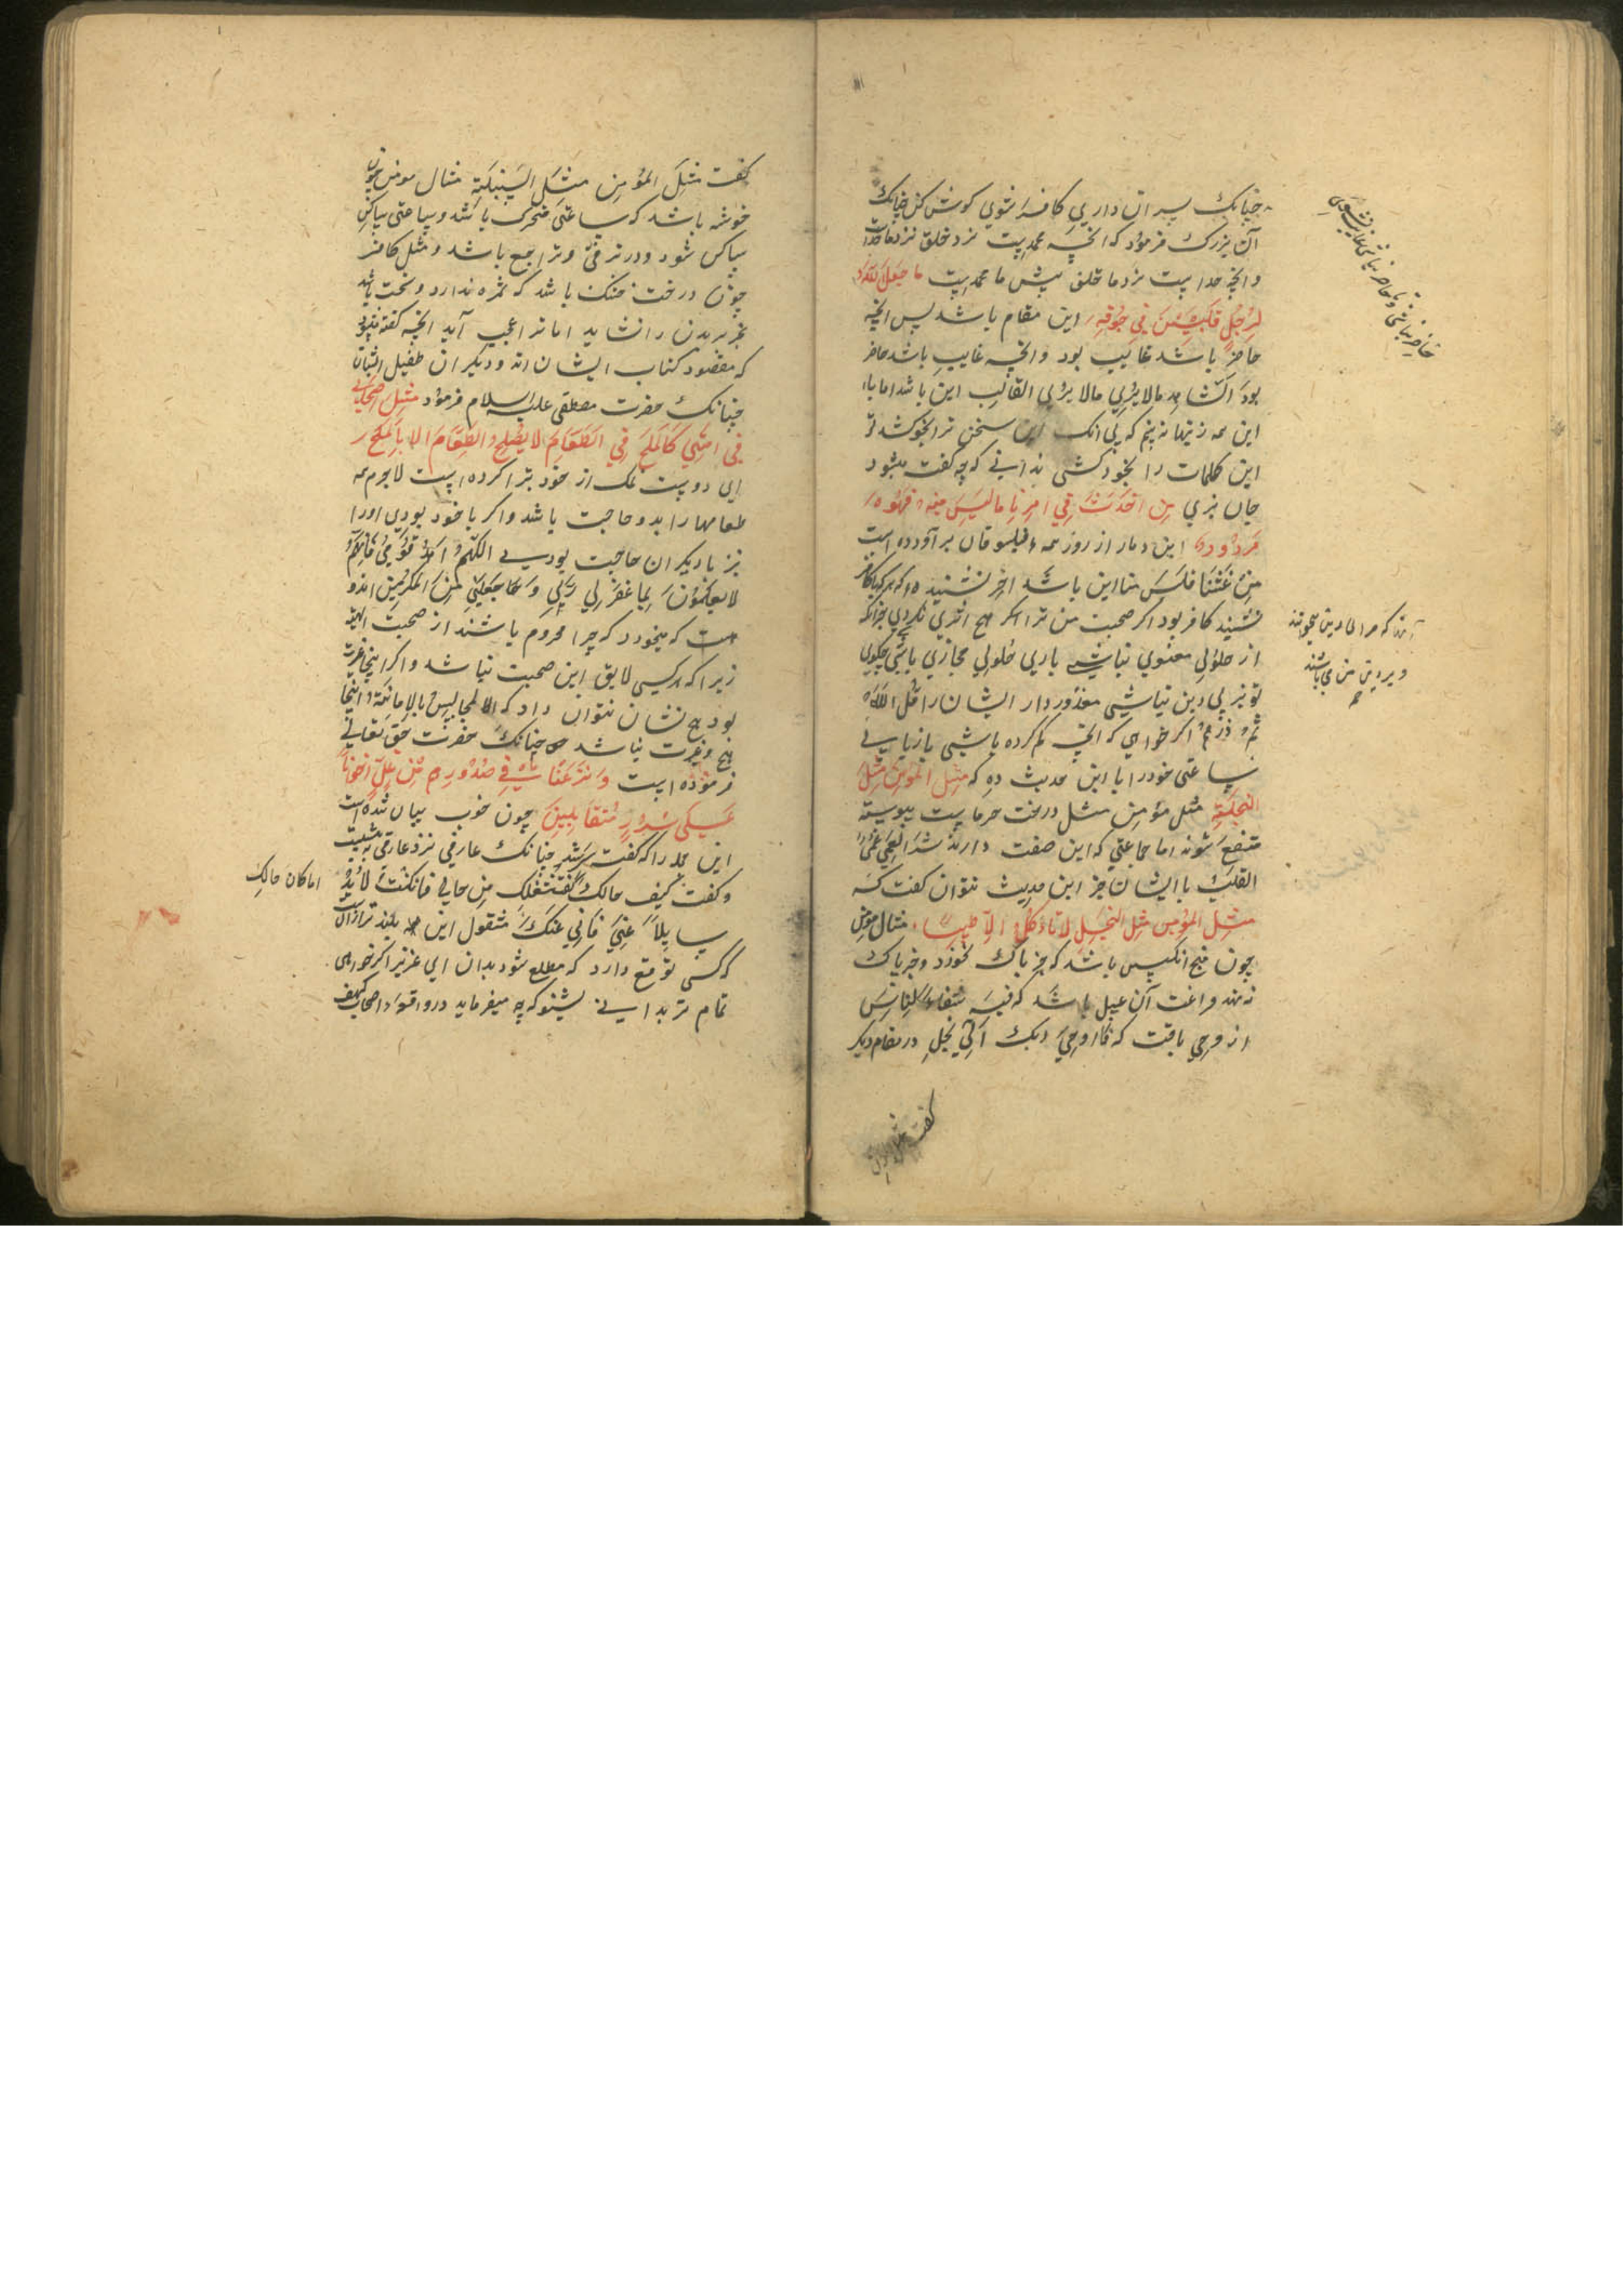 چنانک سر آن داری کافر شوی کوش کن چنانک
آن بزرک فرمود که آنچه محمدیت نزد خلق نزد ما خدا
وانچه خدا یست نزد ما خلق پیش ما محمدیت ما جعل الله
لرجل قلبین فی جوفه این مقام باشد پس آنچه
حاضر باشد غایب بود وانچه غایب باشد حاضر
بود الشاهد مالا یری مالا یری الغائب این باشد اما با
این همه زینهار نه پنجم که بی انک این سخن ترا بخود کشد تو
این کلمات را بخود کشی ندانی که چه گفت میشود
جان بری من احدث فی امرنا ما لیس منه فهو
مردود این دمار از روز همه فیلسوفان برآورده است
من غشنا فلیس منا این باشد آخر نشنیده که هرکه با کافر
نشیند کافر بود اگر صحبت من ترا اگر هیچ اثری نکردی جز انکه
از حلولی معنوی نباشی باری حلولی مجازی باشی چکوی
تو نیز بی دین نباشی معذور دار ایشان را قل الله
ثم ذرهم اگر خواهی که آنچه کم کرده باشی بازیابی
ساعتی خود را با این حدیث ده که مثل المؤمن مثل
النخلة مثل مؤمن مثل درخت خرماست پیوسته
منتفع شوند اما جماعتی که این صفت دارند شر العمی عمی
القلب با ایشان جز این حدیث نتوان گفت که
مثل المؤمن مثل النحل لا تاکل الا طیبا مثال مؤمن
چون منج انکبین باشد که جز پاک نخورد و جز پاک
ننهد فراغت آن عسل باشد که فیه شفاء للناس
از وحی یافت که فاوحی ربک الی النحل در مقام دیگر
آنان که مرا لا دین میخوانند
و بر دین من می باشند
کفت مثل المؤمن
کفت مثل المؤمن مثل السنبلة مثال مومن چون
خوشه باشد که ساعتی متحرک باشد و ساعتی ساکن
ساکن شود ودر ترقی وتراجع باشد و مثل کافر
چون درخت خشک باشد که ثمره ندارد و سخت باشد
بجز بریدن را نشاید اما ترا عجب آید آنچه گفته میشود
که مقصود کتاب ایشان اند و دیگران طفیل ایشان
چنانک حضرت مصطفی علیه السلام فرمود مثل اصحابی
فی امتی کالملح فی الطعام لا یصلح الطعام الا بالملح
ای دوست نمک از خود تبرا کرده است لاجرم همه
طعامها را بدو حاجت باشد واکر با خود بودی او را
نیز با دیگران حاجت بودی اللهم اهد قومی فانهم
لا یعلمون بما غفر لی ربی وجعلنی من المکرمین
است که میخورد که چرا محروم باشند از صحبت
زیرا که هرکسی لایق این صحبت نباشد واکر اینجا غیرت
بود هیچ نشان نتوان داد که المجالس بالامانة اینجا
هیچ وغیرت نباشد چنانک حضرت حق تعالی
فرموده است ونزعنا ما فی صدورهم من غل اخوانا
علی سرر متقابلین چون خوب بیان شده است
این جمله را که گفت شد چنانک عارفی نزد عارفی نبشت
وکفت کیف حالک
اما کان حالک
سایلا عنی فانی عنک مشغول این
که کسی توقع دارد که مطلع شود بدان ای عزیز اگر خواهی
تمام تر بدانی بشنو که چه میفرماید در واقعه اصحاب کهف